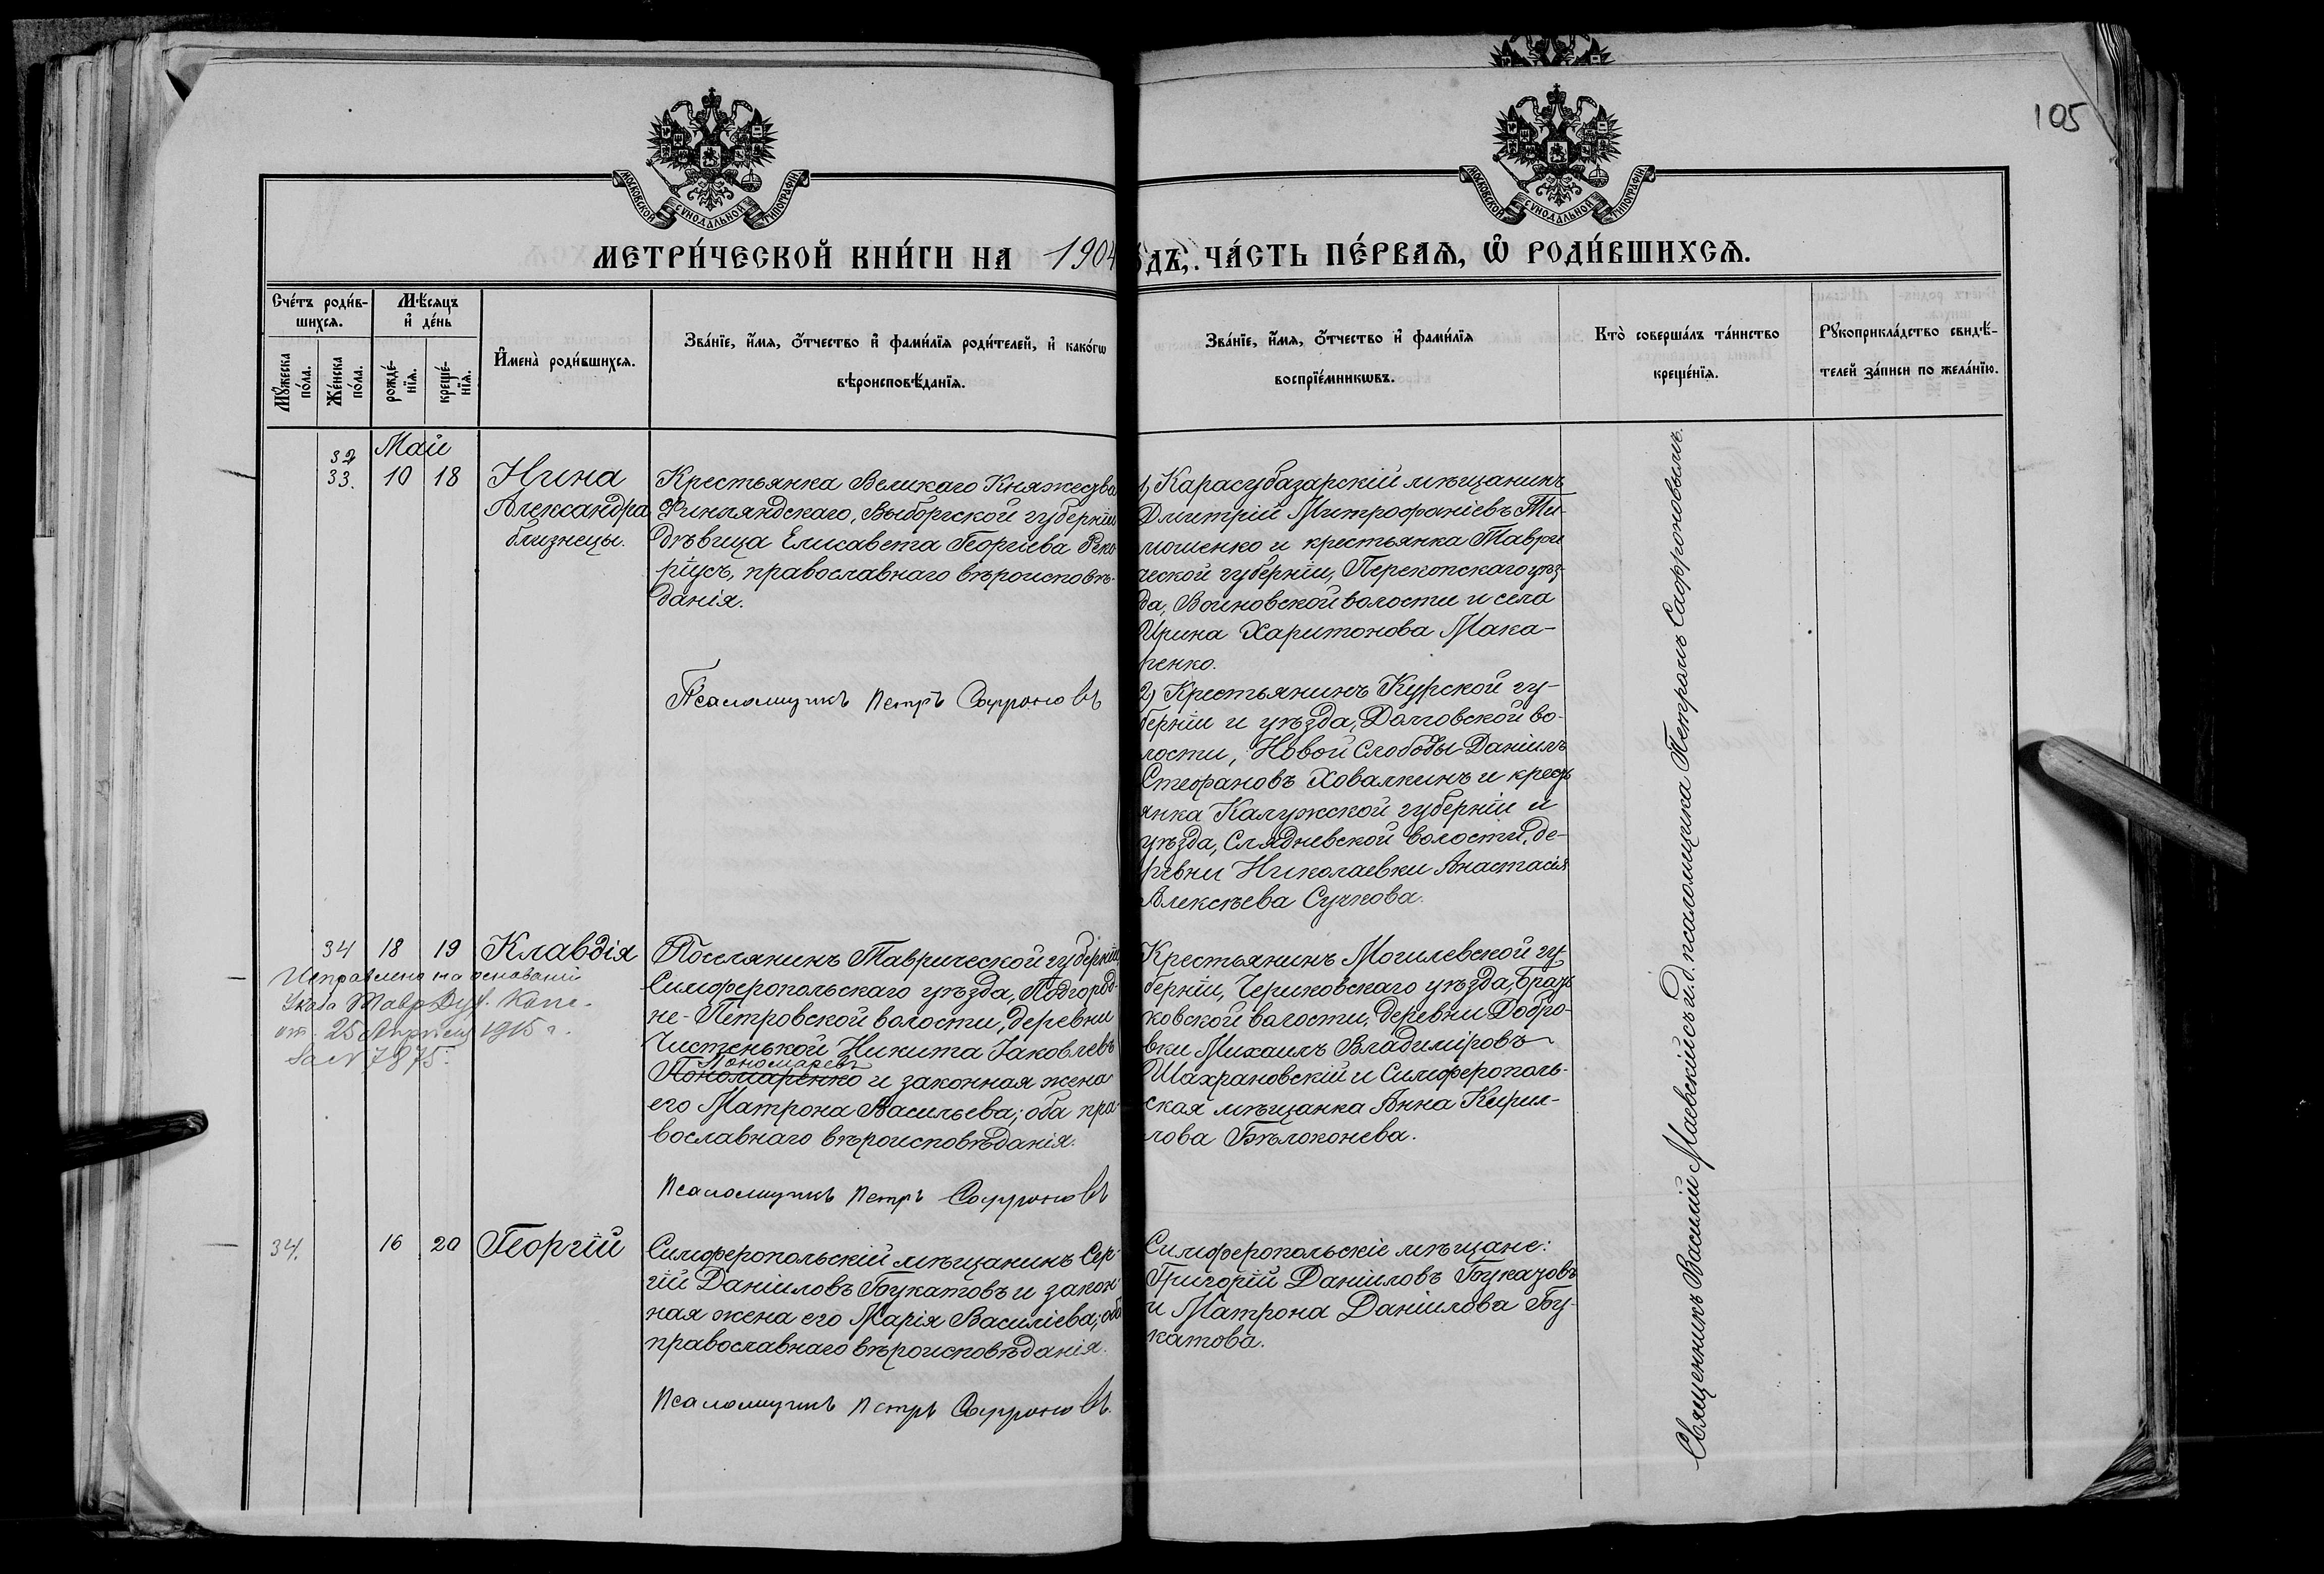 105
МОСКОВСКОЙ СѴНОДАЛЬНОЙ ТИПОГРАФІИ
МОСКОВСКОЙ СѴНОДАЛЬНОЙ ТИПОГРАФІИ
МЕТРИ́ЧЕСКОЙ КНИ́ГИ НА 1904
дъ, ЧА́СТЬ ПЕ́РВАѦ, Ѡ҆ РОДИ́ВШИХСѦ.
Сче́тъ роди́в-
шихсѧ.
Мꙋ́жеска
по́ла.
Же́нска
по́ла.
Мѣ́сѧцъ
и҆ де́нь
рожде́-
нїѧ.
креще́-
нїѧ.
И҆мена̀ роди́вшихсѧ.
Зва́нїе, и҆́мѧ, ѻ҆́тчество и҆ фами́лїѧ роди́телей, и҆ како́гѡ
вѣроисповѣ́данїѧ.
Зва́нїе, и҆́мѧ, ѻ҆́тчество и҆ фами́лїѧ
воспрїе́мникѡвъ.
Кто̀ соверша́лъ та́инство
креще́нїѧ.
Рꙋкоприкла́дство свидѣ́-
телей за́писи по жела́нїю.
Май
32
33. 10 18
Нина
Александра
близнецы.
Крестьянка Великаго Княжества
Финляндскаго, Выборгской губерніи
дѣвица Елисавета Георгіева
ріусъ, православнаго вѣроисповѣ-
данія.
Псаломщикъ Петръ Сафроновъ
1, Карасубазарскій мѣщанинъ
Дмитрій Митрофаніевъ Ти-
мошенко и крестьянка Таври
ческой губерніи, Перекопскаго уѣз-
да, Воиновской волости и села
Ирина Харитонова Мака-
ренко.
2) Крестьянинъ Курской гу-
берніи и уѣзда, Долговской во-
лости, Новой Слободы Даніилъ
Стефановъ Ховалкинъ и кресть
янка Калужской губерніи и
уѣзда, Слядневской волости, де-
ревни Николаевки Анастасія
Алексѣева Сучкова.
34 18 19 Клавдія
Исправлено на основаніи
Указа Тавр. Дух. Конс.
от 25 Апрѣля 1915 г.
за N 7875.
Поселянинъ Таврической губерніи
Симферопольскаго уѣзда, Подгород-
не-Петровской волости, деревни
Чистенькой Никита Іаковлевъ
Пономаревъ
Пономаренко и законная жена
его Матрона Васильева; оба пра-
вославнаго вѣроисповѣданія.
Псаломщикъ Петръ Сафроновъ
Крестьянинъ Могилевской гу-
берніи, Чериковскаго уѣзда,
ковской волости, деревни Добро-
вки Михаилъ Владиміровъ
Шахрановскій и Симферополь-
ская мѣщанка Анна Кирил-
лова Бѣлоконева.
34. 16 20 Георгій
Симферопольскій мѣщанинъ Сер-
гій Даніиловъ Букатовъ и закон-
ная жена его Марія Василіева; оба
православнаго вѣроисповѣданія.
Псаломщикъ Петръ Сафроновъ.
Симферопольскіе мѣщане:
Григорій Даніиловъ Букатовъ
и Матрона Даніилова Бу-
катова.
Священникъ Василій Маевскій съ и. д. псаломщика Петромъ Сафроновымъ.